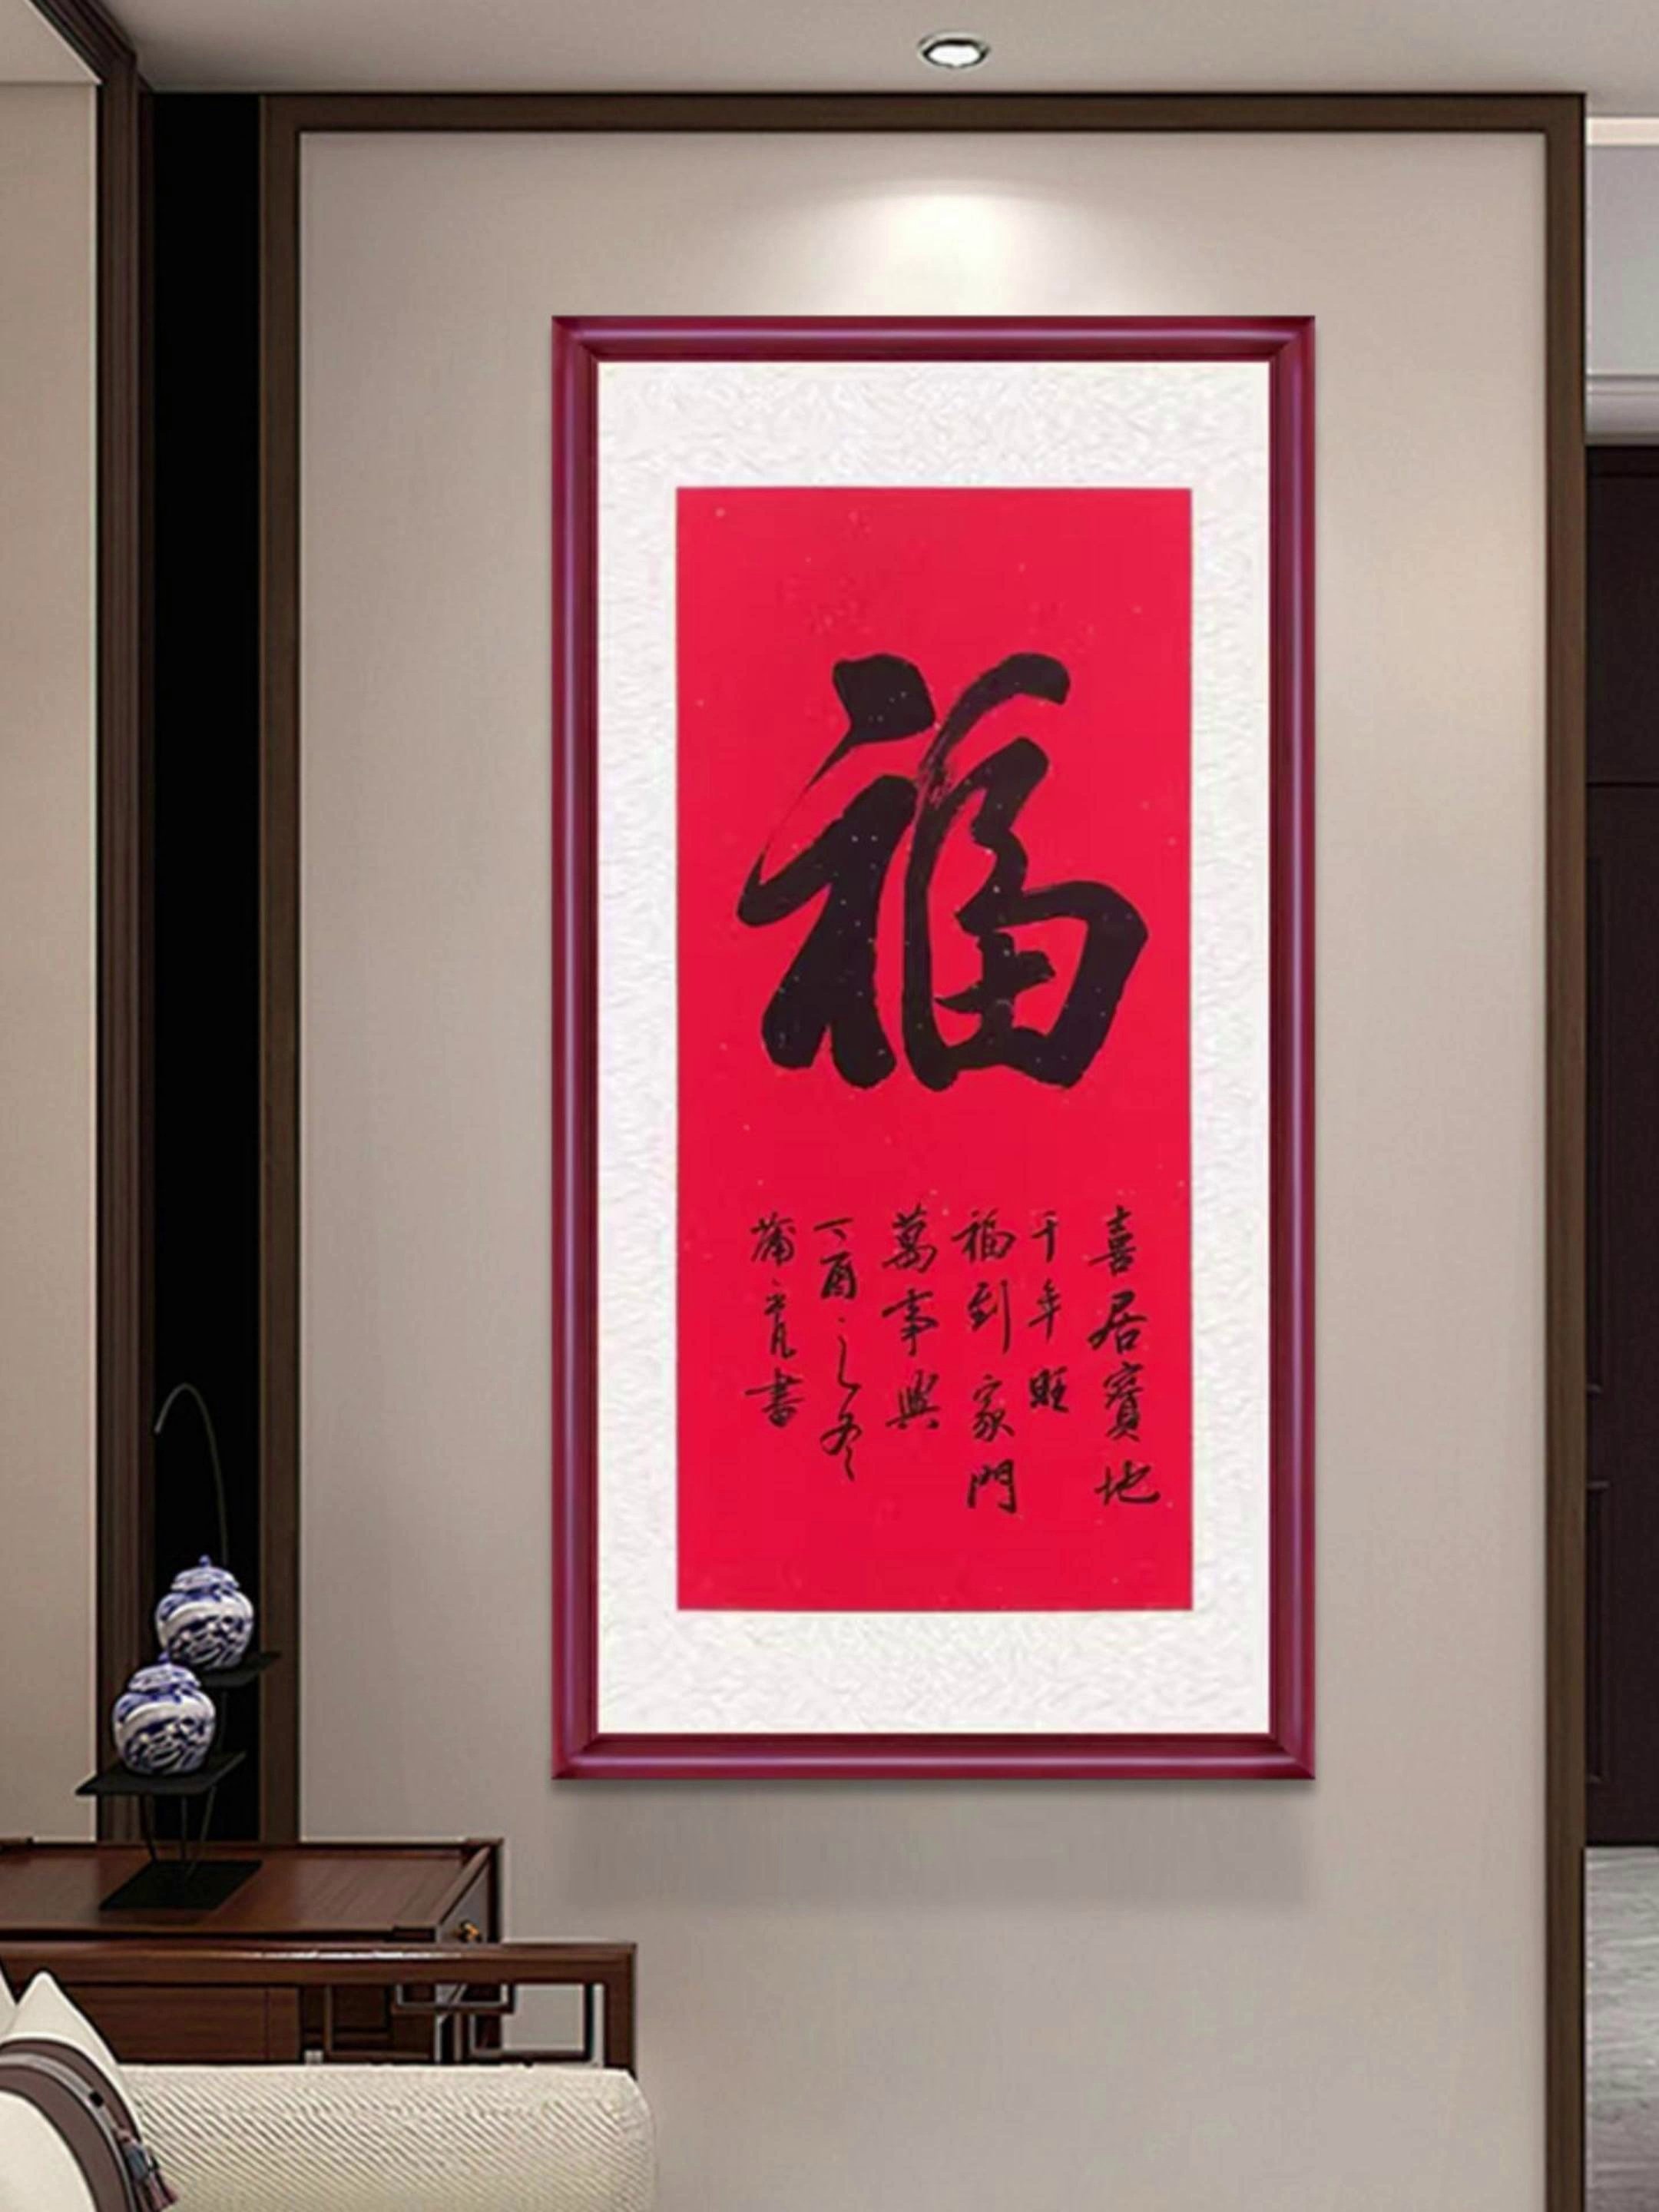 福
喜居寶地
千年旺
福到家門
萬事興
丁酉之冬
蒲
書